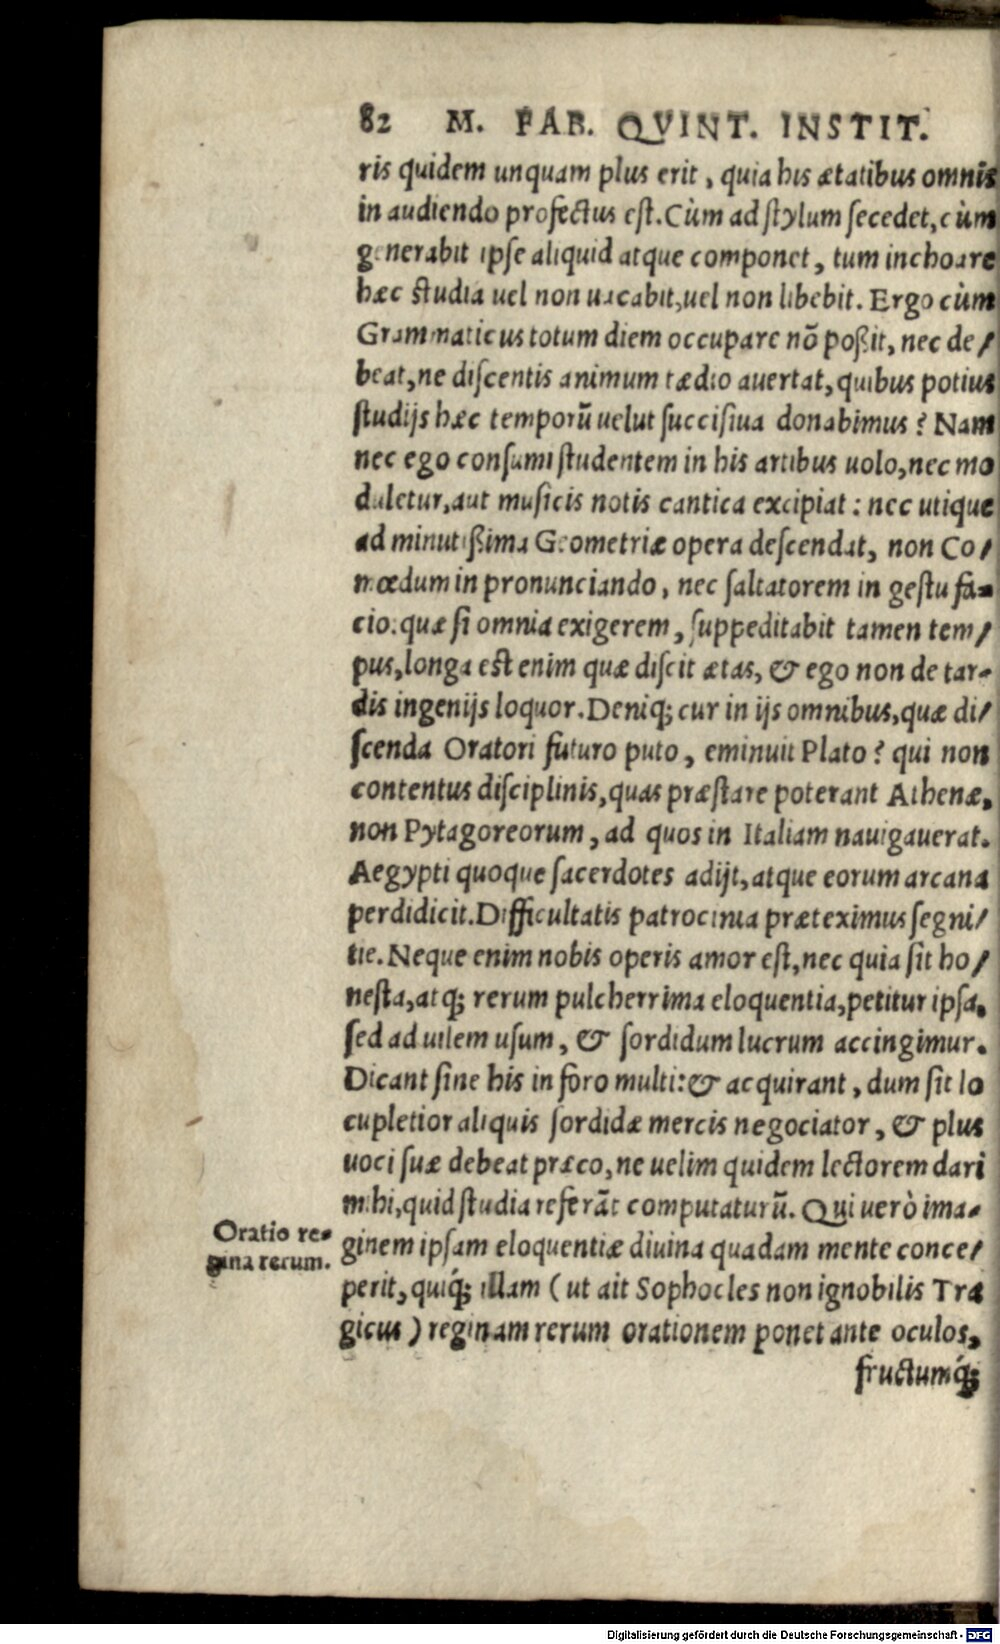 82 M. FAB. QVINT. INSTIT.
ris quidem unquam plus erit, quia his ætatibus omnis
in audiendo profectus est. Cùm ad stylum secedet, cùm
generabit ipse aliquid atque componet, tum inchoare
hæc studia uel non uacabit, uel non libebit. Ergo cùm
Grammaticus totum diem occupare nõ poßit, nec de/
beat, ne discentis animum tædio auertat, quibus potius
studijs hæc temporũ uelut succisiua donabimus? Nam
nec ego consumi studentem in his artibus uolo, nec mo
duletur, aut musicis notis cantica excipiat: nec utique
ad minutißima Geometriæ opera descendat, non Co/
mœdum in pronunciando, nec saltatorem in gestu fa-
cio. quæ si omnia exigerem, suppeditabit tamen tem/
pus, longa est enim quæ discit ætas, & ego non de tar-
dis ingenijs loquor. Deniq; cur in ijs omnibus, quæ di/
scenda Oratori futuro puto, eminuit Plato? qui non
contentus disciplinis, quas præstare poterant Athenæ,
non Pytagoreorum, ad quos in Italiam nauigauerat.
Aegypti quoque sacerdotes adijt, atque eorum arcana
perdidicit. Difficultatis patrocinia præteximus segni/
tie. Neque enim nobis operis amor est, nec quia sit ho/
nesta, atq; rerum pulcherrima eloquentia, petitur ipsa,
sed ad uilem usum, & sordidum lucrum accingimur.
Dicant sine his in foro multi: & acquirant, dum sit lo
cupletior aliquis sordidæ mercis negociator, & plus
uoci suæ debeat præco, ne uelim quidem lectorem dari
mihi, quid studia referãt computaturũ. Qui uerò ima-
Oratio re-
gina rerum.
ginem ipsam eloquentiæ diuina quadam mente conce/
perit, quiq́; illam (ut ait Sophocles non ignobilis Tra
gicus) reginam rerum orationem ponet ante oculos,
fructumq́;
Digitalisierung gefördert durch die Deutsche Forschungsgemeinschaft - DFG